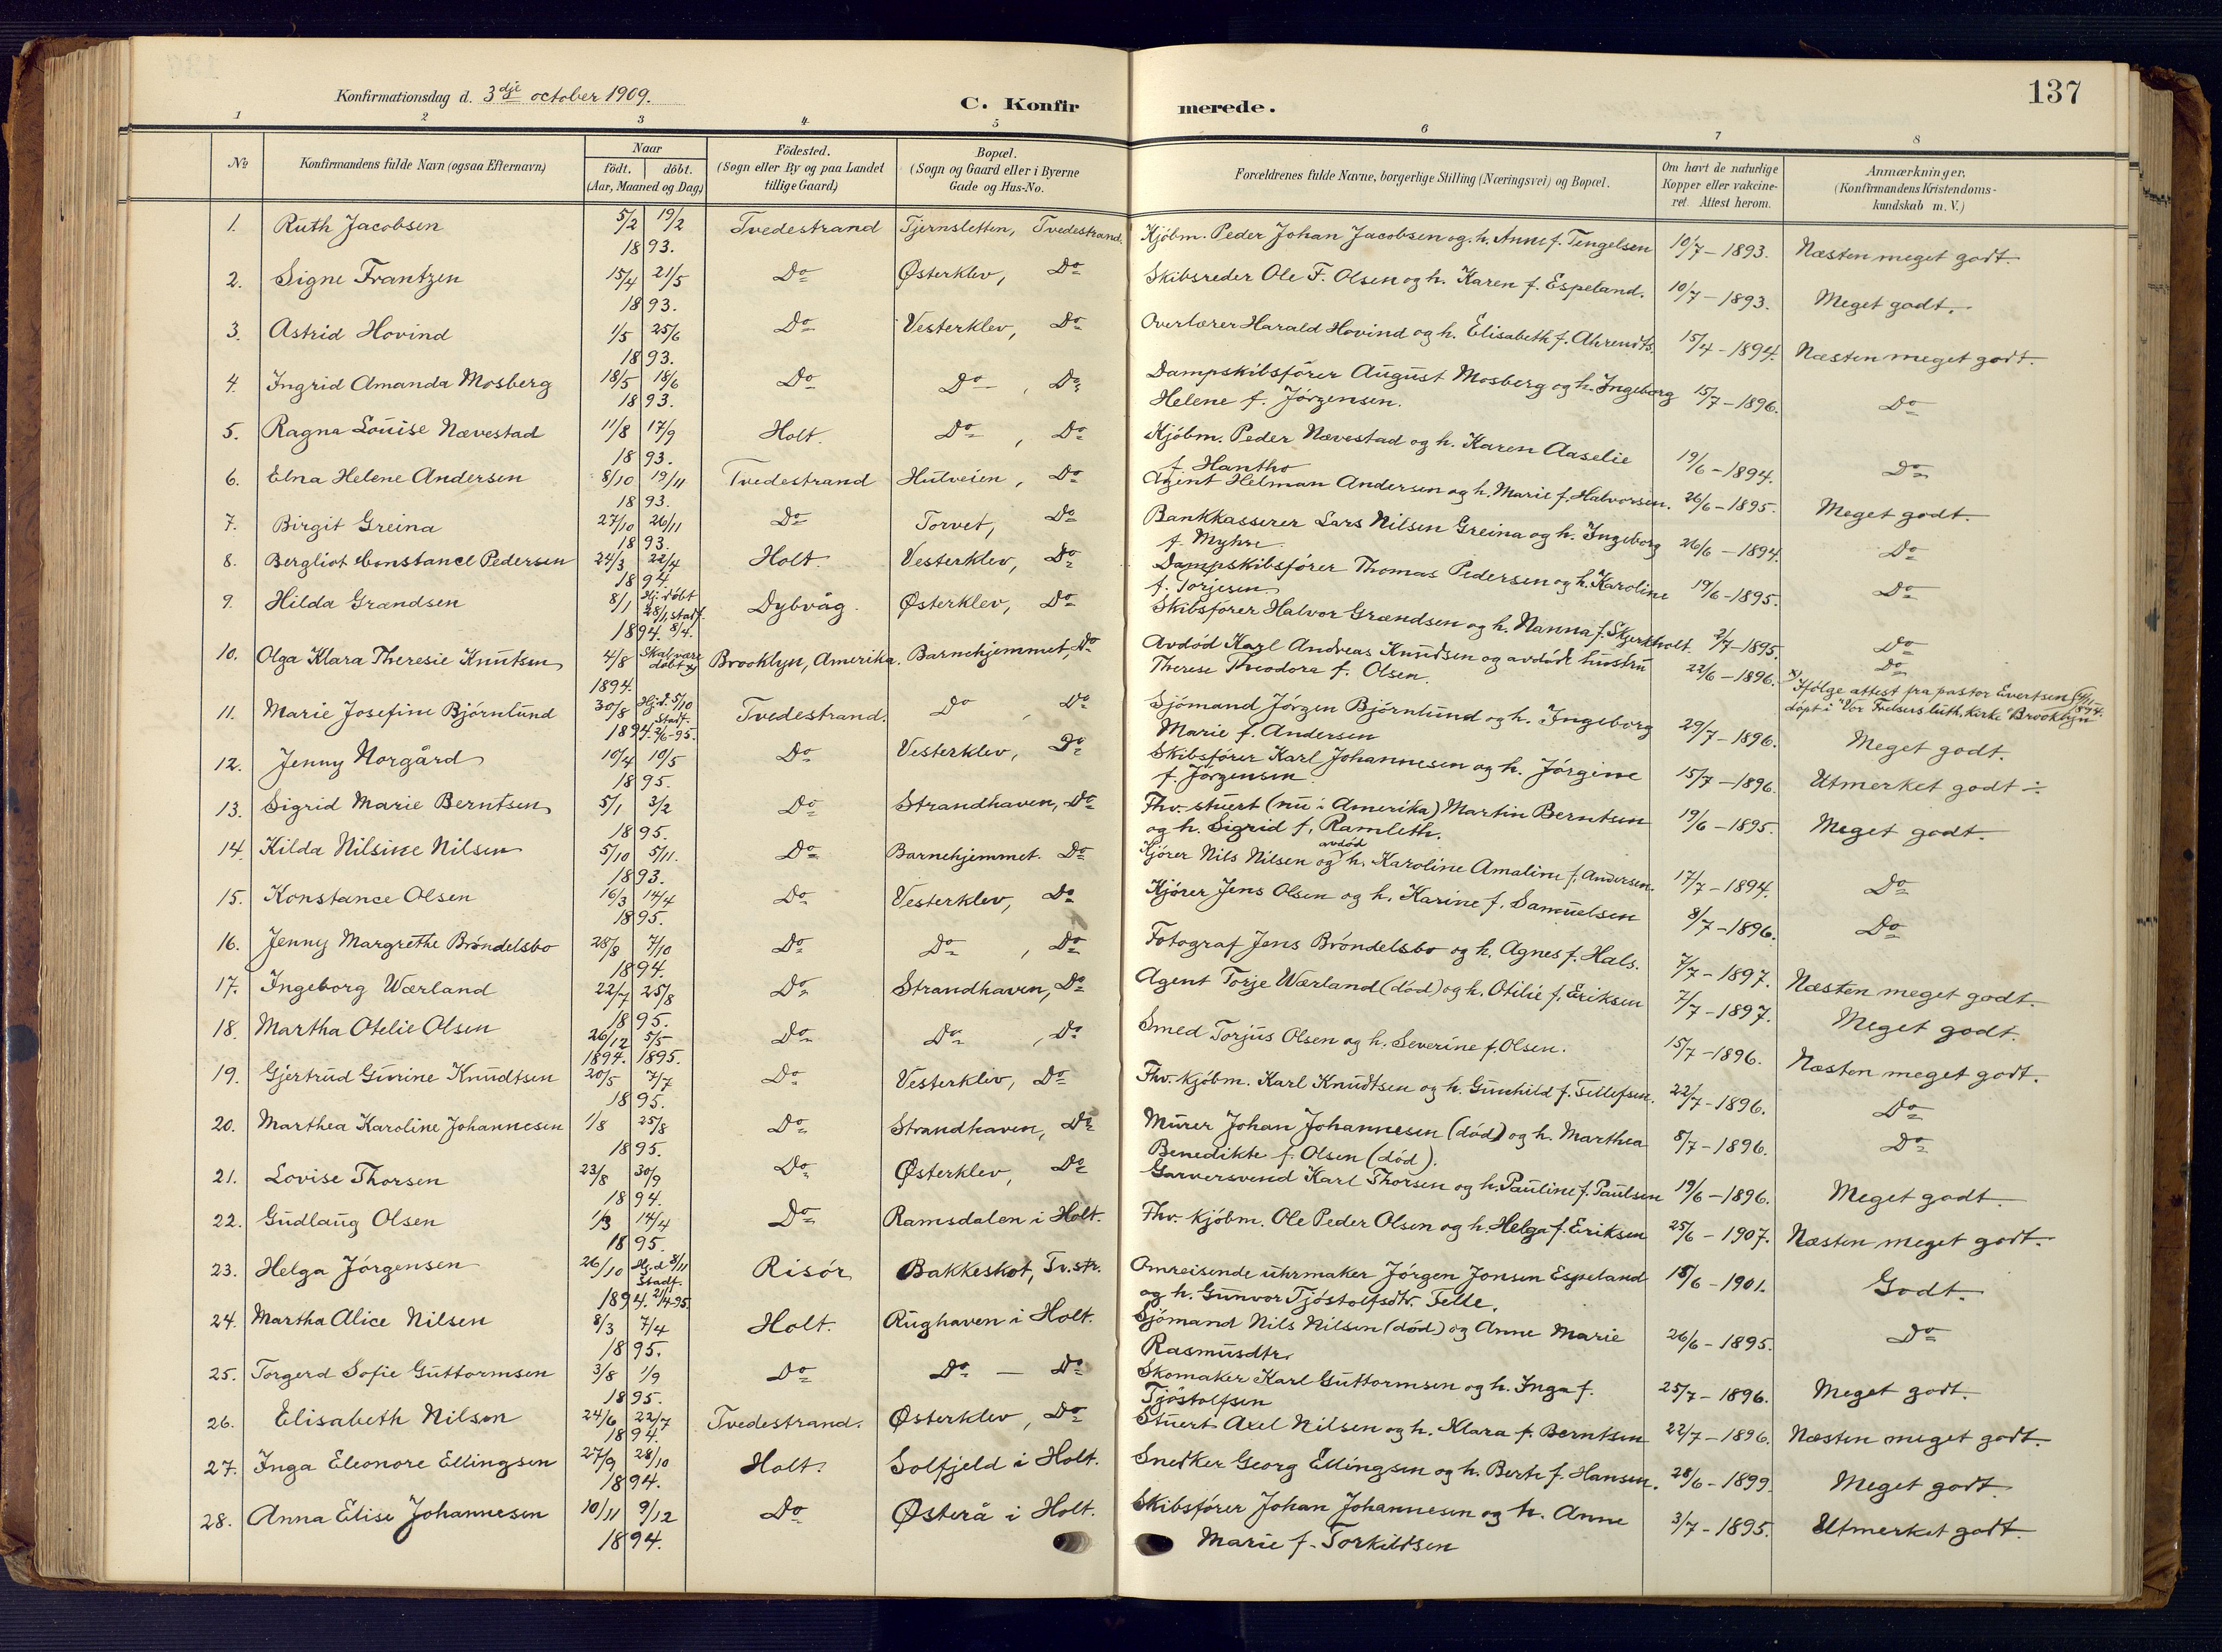 137
Konfirmationsdag d. 3dje october 1909.
C. Konfirmerede.
1 2 3 4 5 6 7 8
No | Konfirmandens fulde Navn (ogsaa Efternavn) | Naar födt. döbt. (Aar, Maaned og Dag) | Födested. (Sogn eller By og paa Landet tillige Gaard) | Bopæl. (Sogn og Gaard eller i Byerne Gade og Hus-No. | Forældrenes fulde Navne, borgerlige Stilling (Næringsvei) og Bopæl. | Om havt de naturlige Kopper eller vakcineret. Attest herom. | Anmærkninger, (Konfirmandens Kristendomskundskab m. V.)
1. Ruth Jacobsen 5/2 19/2 1893. Tvedestrand Tjernsletten, Tvedestrand. Kjöbm. Peder Johan Jacobsen og h. Anne f. Tengelsen 10/7-1893. Næsten meget godt.
2. Signe Frantzen 15/4 21/5 1893. Do Østerklev, Do Skibsreder Ole F. Olsen og h. Karen f. Espeland. 10/7-1893. Meget godt.
3. Astrid Hovind 1/5 25/6 1893. Do Vesterklev, Do Overlærer Harald Hovind og h. Elisabeth f. Ahrendts. 15/4-1894. Næsten meget godt.
4. Ingrid Amanda Mosberg 18/5 18/6 1893. Do Do, Do Dampskibsförer August Mosberg og h. Ingeborg Helene f. Jörgensen. 15/7-1896. Do
5. Ragna Louise Nævestad 11/8 17/9 1893. Holt. Do, Do Kjöbm. Peder Nævestad og h. Karen Aaselie f. Hantho 19/6-1894. Do
6. Elna Helene Andersen 8/10 19/11 1893. Tvedestrand Hulveien, Do Agent Helman Andersen og h. Marie f. Halvorsen. 26/6-1895. Meget godt.
7. Birgit Greina 27/10 26/11 1893. Do Torvet, Do Bankkasserer Lars Nilsen Greina og h. Ingeborg f. Myhre. 26/6-1894. Do
8. Bergliot Constance Pedersen 24/3 22/4 1894. Holt. Vesterklev, Do Dampskibsförer Thomas Pedersen og h. Karoline f. Torjesen 19/6-1895. Do
9. Hilda Grændsen 8/1 Hj. döbt 28/1, stadf. 8/4. 1894. Dybvåg. Østerklev, Do Skibsförer Halvor Grændsen og h. Nanna f. Skjerkholt. 2/7-1895. Do
10. Olga Klara Theresie Knutsen 4/8 Skal være döbt x) 1894. Brooklyn, Amerika. Barnehjemmet, Do Avdöd Karl Andreas Knudsen og avdöde hustru Therese Theodora f. Olsen. 22/6-1896. Do x) Ifölge attest fra pastor Evertsen 1894. döpt i "Vor Frelsers luth. kirke" Brooklyn
11. Marie Josefine Björnlund 30/8 Hj.d. 5/10 Stadf. 2/6-95. 1894. Tvedestrand. Do, Do Sjömand Jörgen Björnlund og h. Ingeborg Marie f. Andersen 29/7-1896. Meget godt.
12. Jenny Norgård 10/4 10/5 1895. Do Vesterklev, Do Skibsförer Karl Johannesen og h. Jörgine f. Jörgensen. 15/7-1896. Utmerket godt ÷
13. Sigrid Marie Berntsen 5/1 3/2 1895. Do Strandhaven, Do Fhv. stuert (nu i Amerika) Martin Berntsen og h. Sigrid f. Ramleth. 19/6-1895. Meget godt.
14. Hilda Nilsine Nilsen 5/10 5/11. 1893. Do Barnehjemmet. Do Kjörer Nils Nilsen og avdöd h. Karoline Amaline f. Andersen. 17/7-1894. Do
15. Konstance Olsen 16/3 14/4 1895. Do Vesterklev, Do Kjörer Jens Olsen og h. Karine f. Samuelsen 8/7-1896. Do
16. Jenny Margrethe Bröndelsbo 28/8 7/10 1894. Do Do, Do Fotograf Jens Bröndelsbo og h. Agnes f. Hals. 7/7-1897. Næsten meget godt.
17. Ingeborg Wærland 22/7 25/8 1895. Do Strandhaven, Do Agent Torje Wærland (död) og h. Otilie f. Eriksen 7/7-1897. Meget godt.
18. Martha Otelie Olsen 26/12 5/5 1894. 1895. Do Do, Do Smed Torjus Olsen og h. Severine f. Olsen. 15/7-1896. Næsten meget godt.
19. Gjertrud Gurine Knudtsen 20/5 7/7 1895. Do Vesterklev, Do Fhv. kjöbm. Karl Knudtsen og h. Gunhild f. Tellefsen. 22/7-1896. Do
20. Marthea Karoline Johannesen 1/8 25/8 1895. Do Strandhaven, Do Murer Johan Johannesen (död) og h. Marthea Benedikte f. Olsen (död). 8/7-1896. Do
21. Lovise Thorsen 23/8 30/9 1894. Do Østerklev, Do Garversvend Karl Thorsen og h. Pauline f. Paulsen 19/6-1896. Meget godt.
22. Gudlaug Olsen 1/3 14/4 1895. Do Ramsdalen i Holt. Fhv. kjöbm. Ole Peder Olsen og h. Helga f. Eriksen 25/6-1907. Næsten meget godt.
23. Helga Jörgensen 26/10 Hj.d 8/11 Stadf. 21/4-95. 1894. Risör Bakkeskot, Tv.str. Omreisende uhrmaker Jörgen Jonsen Espeland og h. Gunvor Tjöstolfsdtr. Felle. 18/6-1901. Godt.
24. Martha Alice Nilsen 8/3 7/4 1895. Holt. Rughaven i Holt. Sjömand Nils Nilsen (död) og Anne Marie Rasmusdtr. 26/6-1895. Do
25. Torgerd Sofie Guttormsen 3/8 1/9 1895. Do Do — Do Skomaker Karl Guttormsen og h. Inga f. Tjöstolfsen 25/7-1896. Meget godt.
26. Elisabeth Nilsen 24/6 22/7 1894. Tvedestrand. Østerklev, Do Stuert Axel Nilsen og h. Klara f. Berntsen 22/7-1896. Næsten meget godt.
27. Inga Eleonore Ellingsen 27/9 28/10 1894. Holt. Solfjeld i Holt. Snedker Georg Ellingsen og h. Berte f. Hansen. 28/6-1899. Meget godt
28. Anna Elise Johannesen 10/11 9/12 1894. Do Østerå i Holt. Skibsförer Johan Johannesen og h. Anne Marie f. Torkildsen 3/7-1895. Utmerket godt.